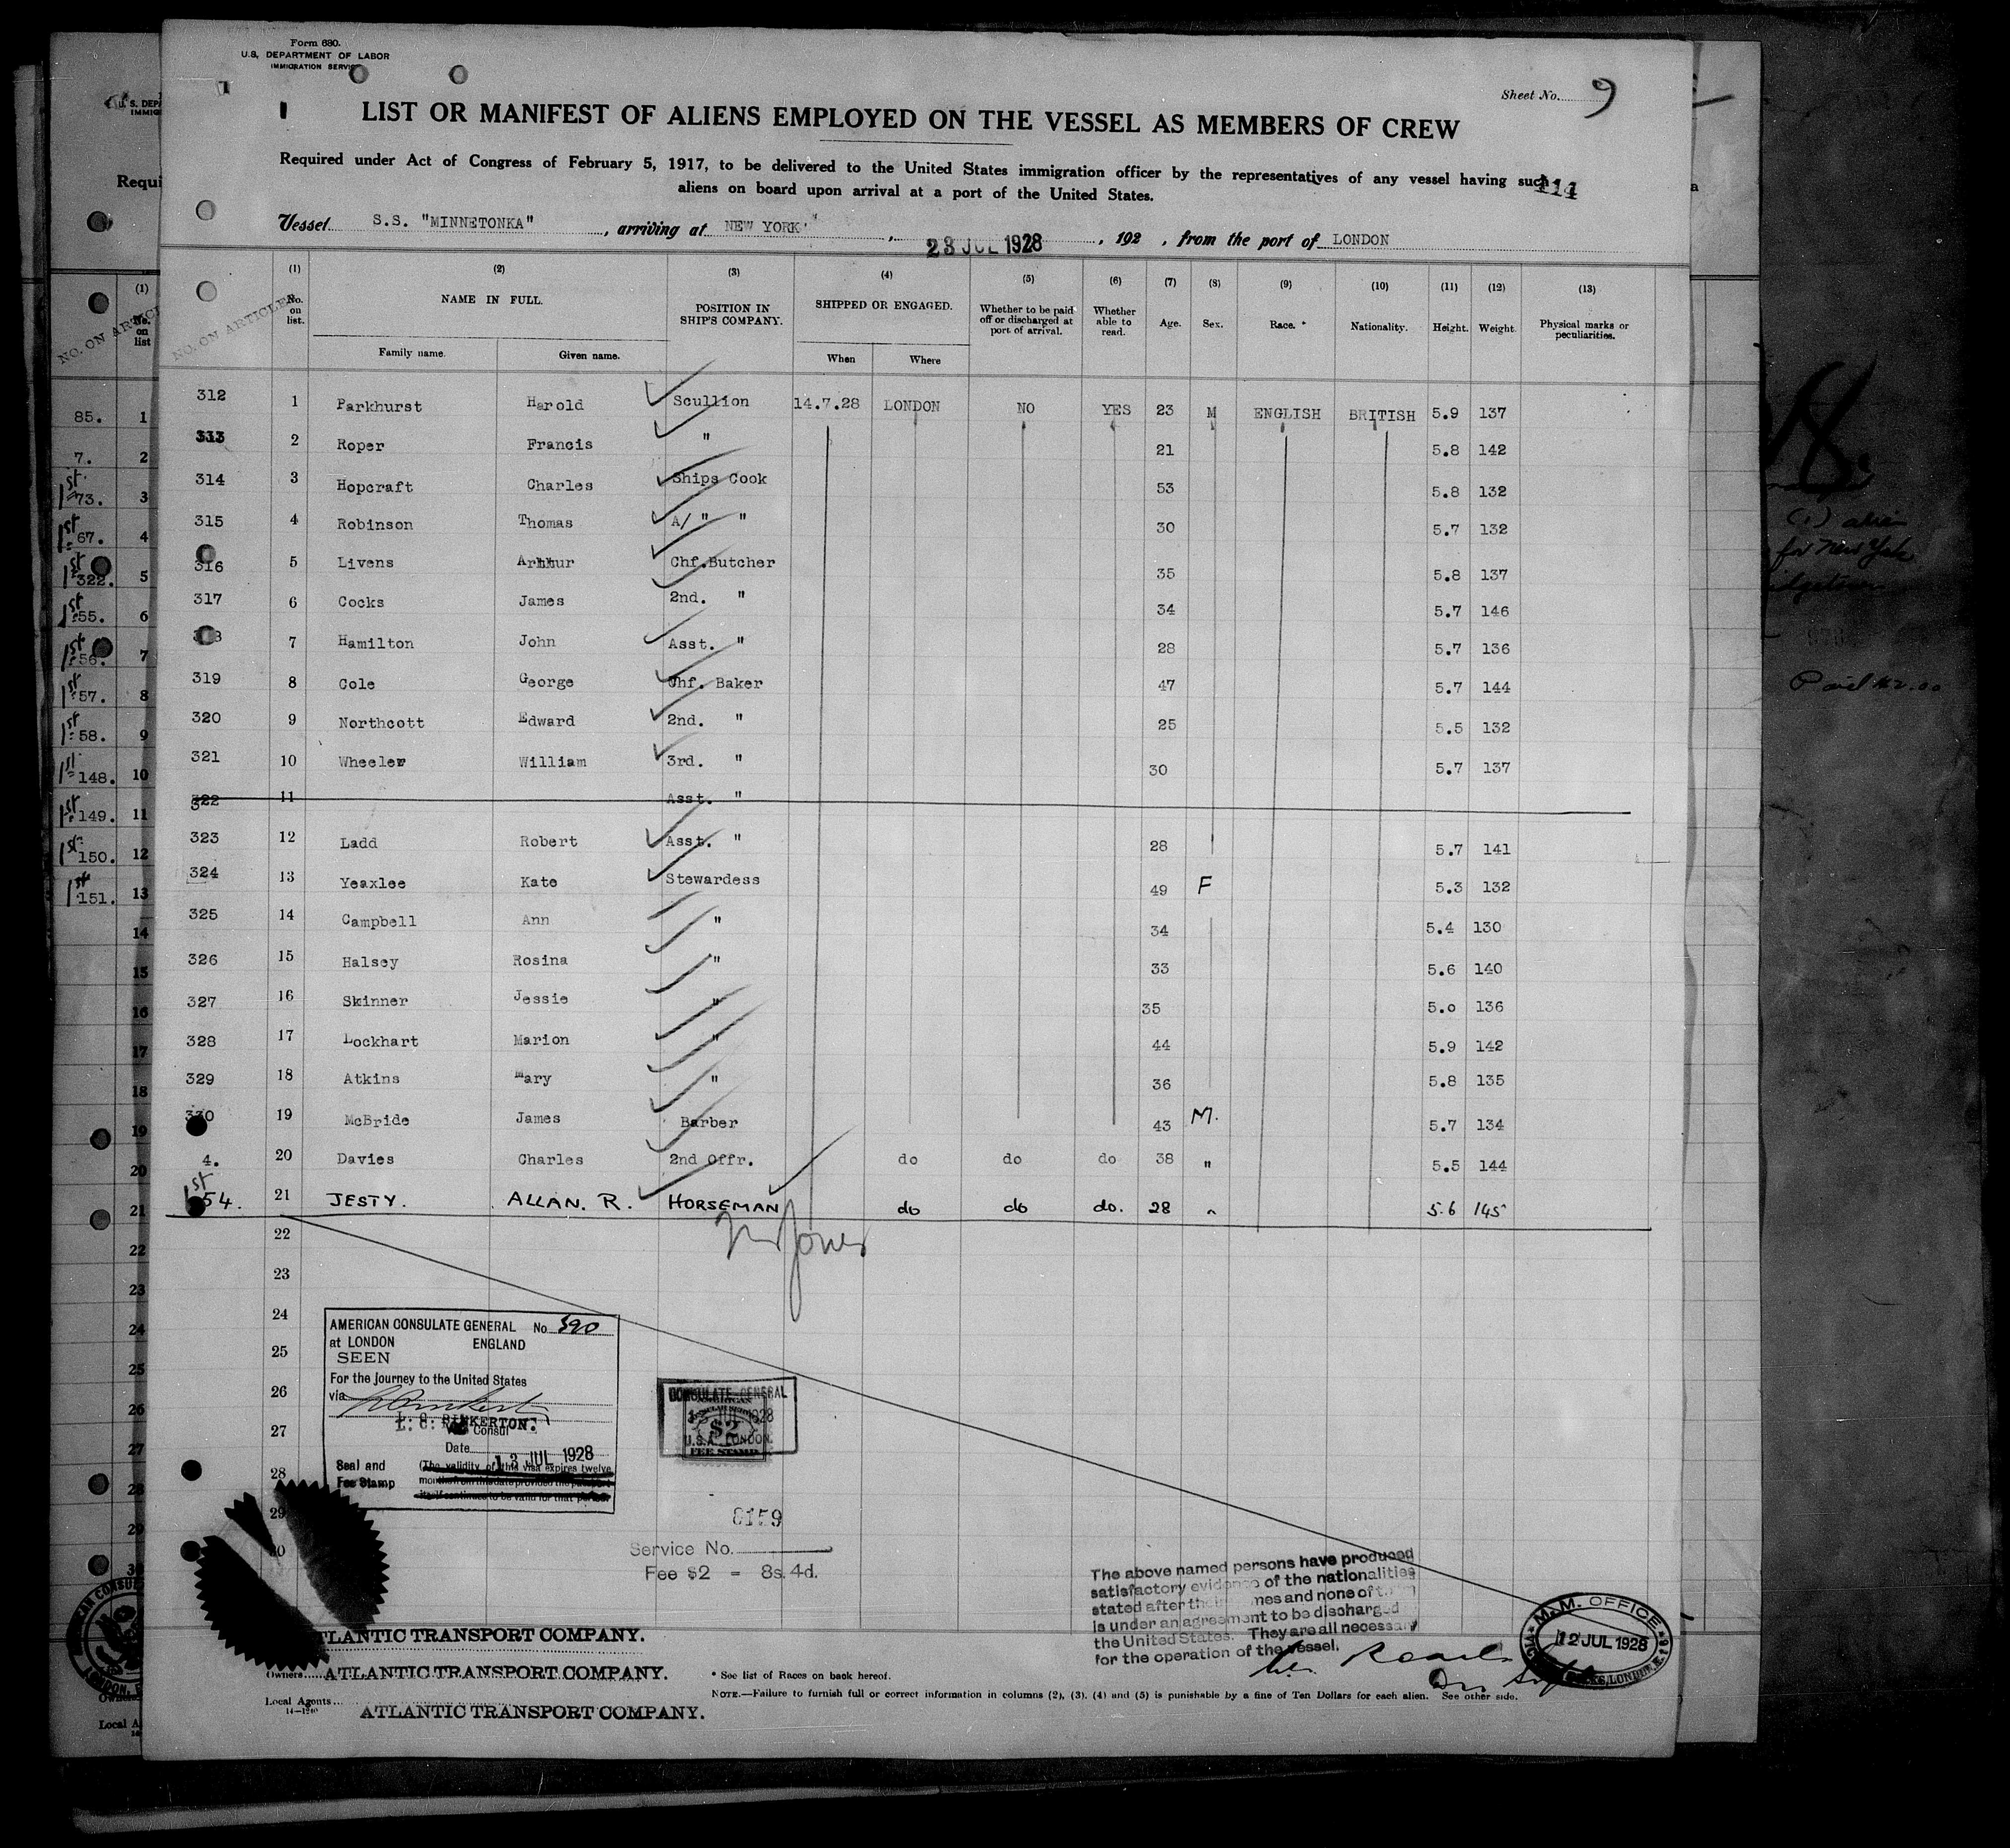 Form 680.
U.S. DEPARTMENT OF LABOR
IMMIGRATION SERVICE
Sheet No. 9
LIST OR MANIFEST OF ALIENS EMPLOYED ON THE VESSEL AS MEMBERS OF CREW
Required under Act of Congress of February 5, 1917, to be delivered to the United States immigration officer by the representatives of any vessel having such
aliens on board upon arrival at a port of the United States.
Vessel S.S. "MINNETONKA" , arriving at NEW YORK , 23 JUL 1928 , 192 , from the port of LONDON
NO. ON ARTICLES
(1) (2) (3) (4) (5) (6) (7) (8) (9) (10) (11) (12) (13)
No. on list. NAME IN FULL. POSITION IN SHIP'S COMPANY. SHIPPED OR ENGAGED. Whether to be paid off or discharged at port of arrival. Whether able to read. Age. Sex. Race. * Nationality. Height. Weight. Physical marks or peculiarities.
Family name. Given name. When Where
312 1 Parkhurst Harold Scullion 14.7.28 LONDON NO YES 23 M ENGLISH BRITISH 5.9 137
313 2 Roper Francis " 21 5.8 142
314 3 Hopcraft Charles Ships Cook 53 5.8 132
315 4 Robinson Thomas A/ " " 30 5.7 132
316 5 Livens Arthur Chf.Butcher 35 5.8 137
317 6 Cocks James 2nd. " 34 5.7 146
318 7 Hamilton John Asst. " 28 5.7 136
319 8 Cole George Chf. Baker 47 5.7 144
320 9 Northcott Edward 2nd. " 25 5.5 132
321 10 Wheeler William 3rd. " 30 5.7 137
322 11 Asst. "
323 12 Ladd Robert Asst. " 28 5.7 141
324 13 Yeaxlee Kate Stewardess 49 F 5.3 132
325 14 Campbell Ann " 34 5.4 130
326 15 Halsey Rosina " 33 5.6 140
327 16 Skinner Jessie " 35 5.0 136
328 17 Lockhart Marion " 44 5.9 142
329 18 Atkins Mary " 36 5.8 135
330 19 McBride James Barber 43 M. 5.7 134
4. 20 Davies Charles 2nd Offr. do do do 38 " 5.5 144
1st 54. 21 JESTY. ALLAN. R. HORSEMAN do do do. 28 " 5.6 145
22
23
24
25
26
27
28
29
30
AMERICAN CONSULATE GENERAL No 590
at LONDON ENGLAND
SEEN
For the journey to the United States
via
L. C. PINKERTON.
Vice Consul
Date 13 JUL 1928
Seal and Fee Stamp
(The validity of this visa expires twelve
months from this date provided the passport
itself continues to be valid for that period.
CONSULATE GENERAL
13 JUL 1928
$2
U.S.A. LONDON.
FEE STAMP
8159
Service No.
Fee $2 = 8s. 4d.
The above named persons have produced
satisfactory evidence of the nationalities
stated after their names and none of them
is under an agreement to be discharged
the United States. They are all necessary
for the operation of the vessel.
M.M. OFFICE
12 JUL 1928
ATLANTIC TRANSPORT COMPANY.
Owners ATLANTIC TRANSPORT COMPANY.
Local Agents ATLANTIC TRANSPORT COMPANY.
* See list of Races on back hereof.
NOTE.—Failure to furnish full or correct information in columns (2), (3), (4) and (5) is punishable by a fine of Ten Dollars for each alien. See other side.
14—1240
85. 1
7. 2
1st 73. 3
1st 67. 4
1st 322. 5
1st 55. 6
1st 56. 7
1st 57. 8
1st 58. 9
1st 148. 10
1st 149. 11
1st 150. 12
1st 151. 13
14
15
16
17
18
19
20
21
22
23
24
25
26
27
28
29
30
(1) alien
for New York
Paid $2.00